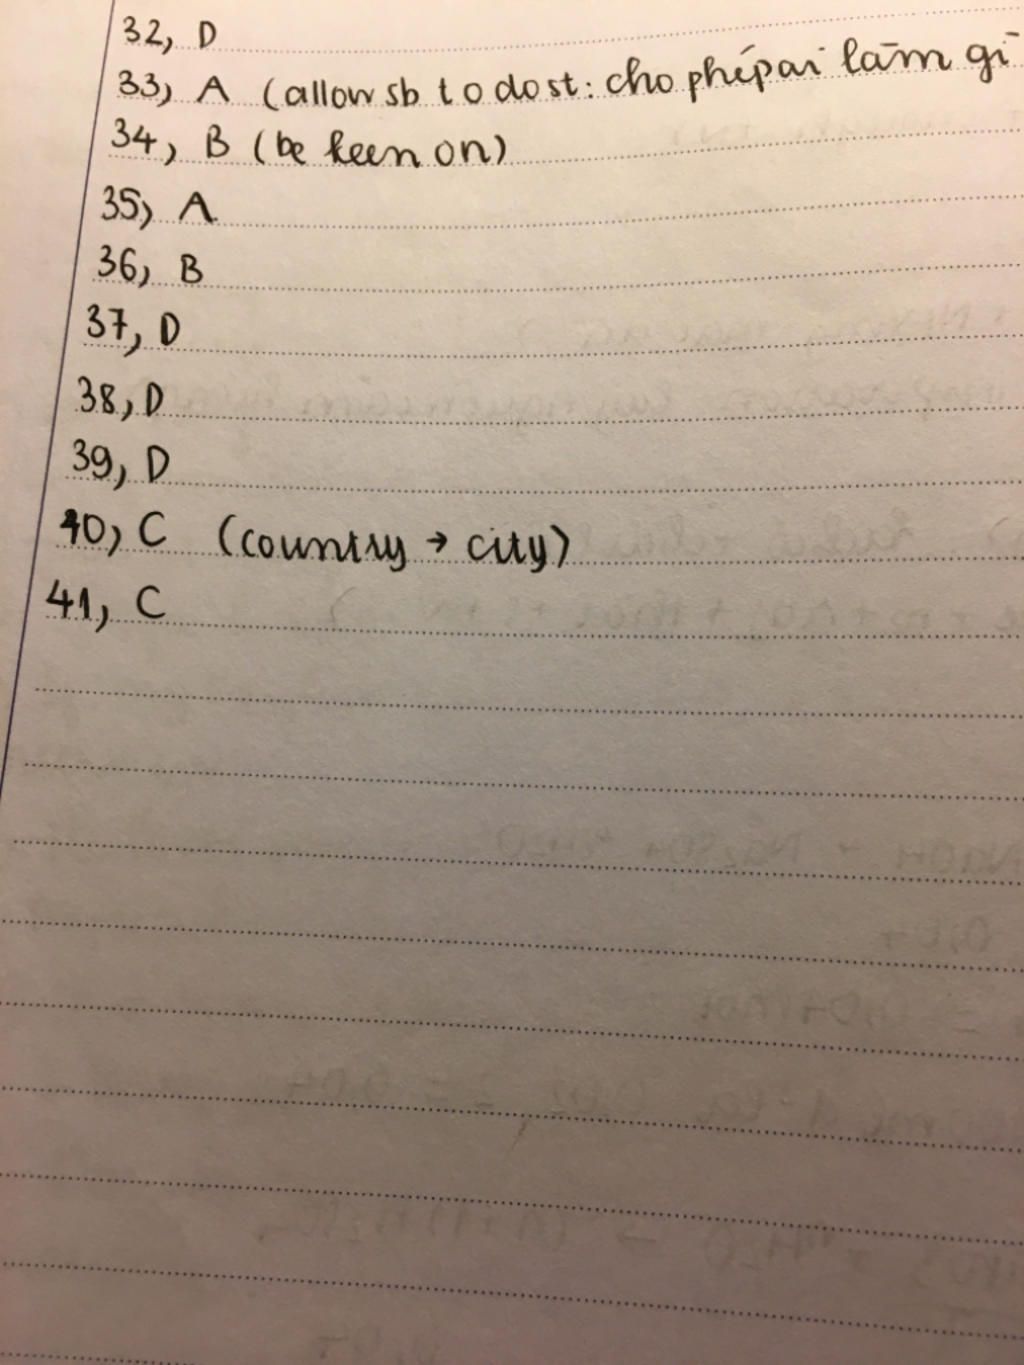 32, D
33, A (allow sb to do st: cho phép ai làm gì
34, B (be keen on)
35, A
36, B
37, D
38, D
39, D
40, C (country → city)
41, C